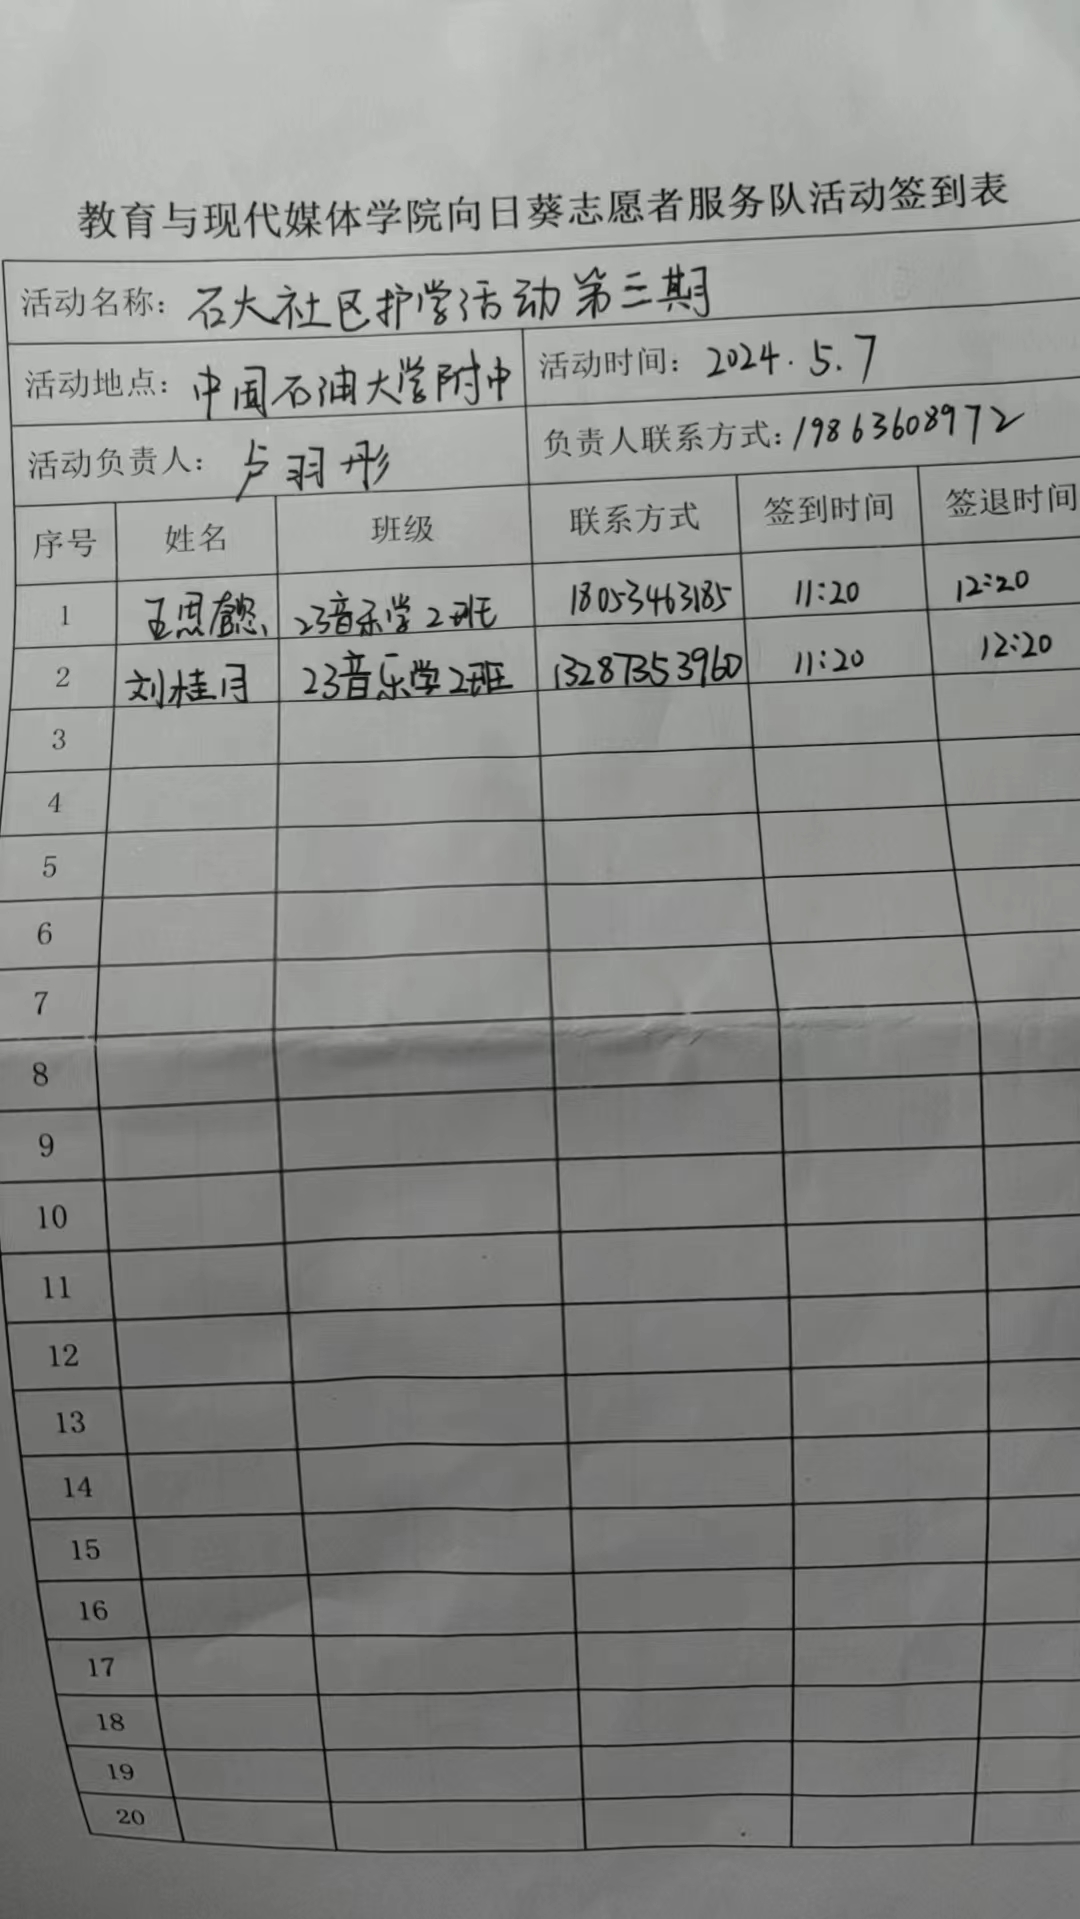 教育与现代媒体学院向日葵志愿者服务队活动签到表
活动名称：石大社区护学活动第三期
活动地点：中国石油大学附中 活动时间：2024.5.7
活动负责人：卢羽彤 负责人联系方式：19863608972
序号 姓名 班级 联系方式 签到时间 签退时间
1 王思懿 23音乐学2班 18053463185 11:20 12:20
2 刘桂月 23音乐学2班 13287353960 11:20 12:20
3
4
5
6
7
8
9
10
11
12
13
14
15
16
17
18
19
20